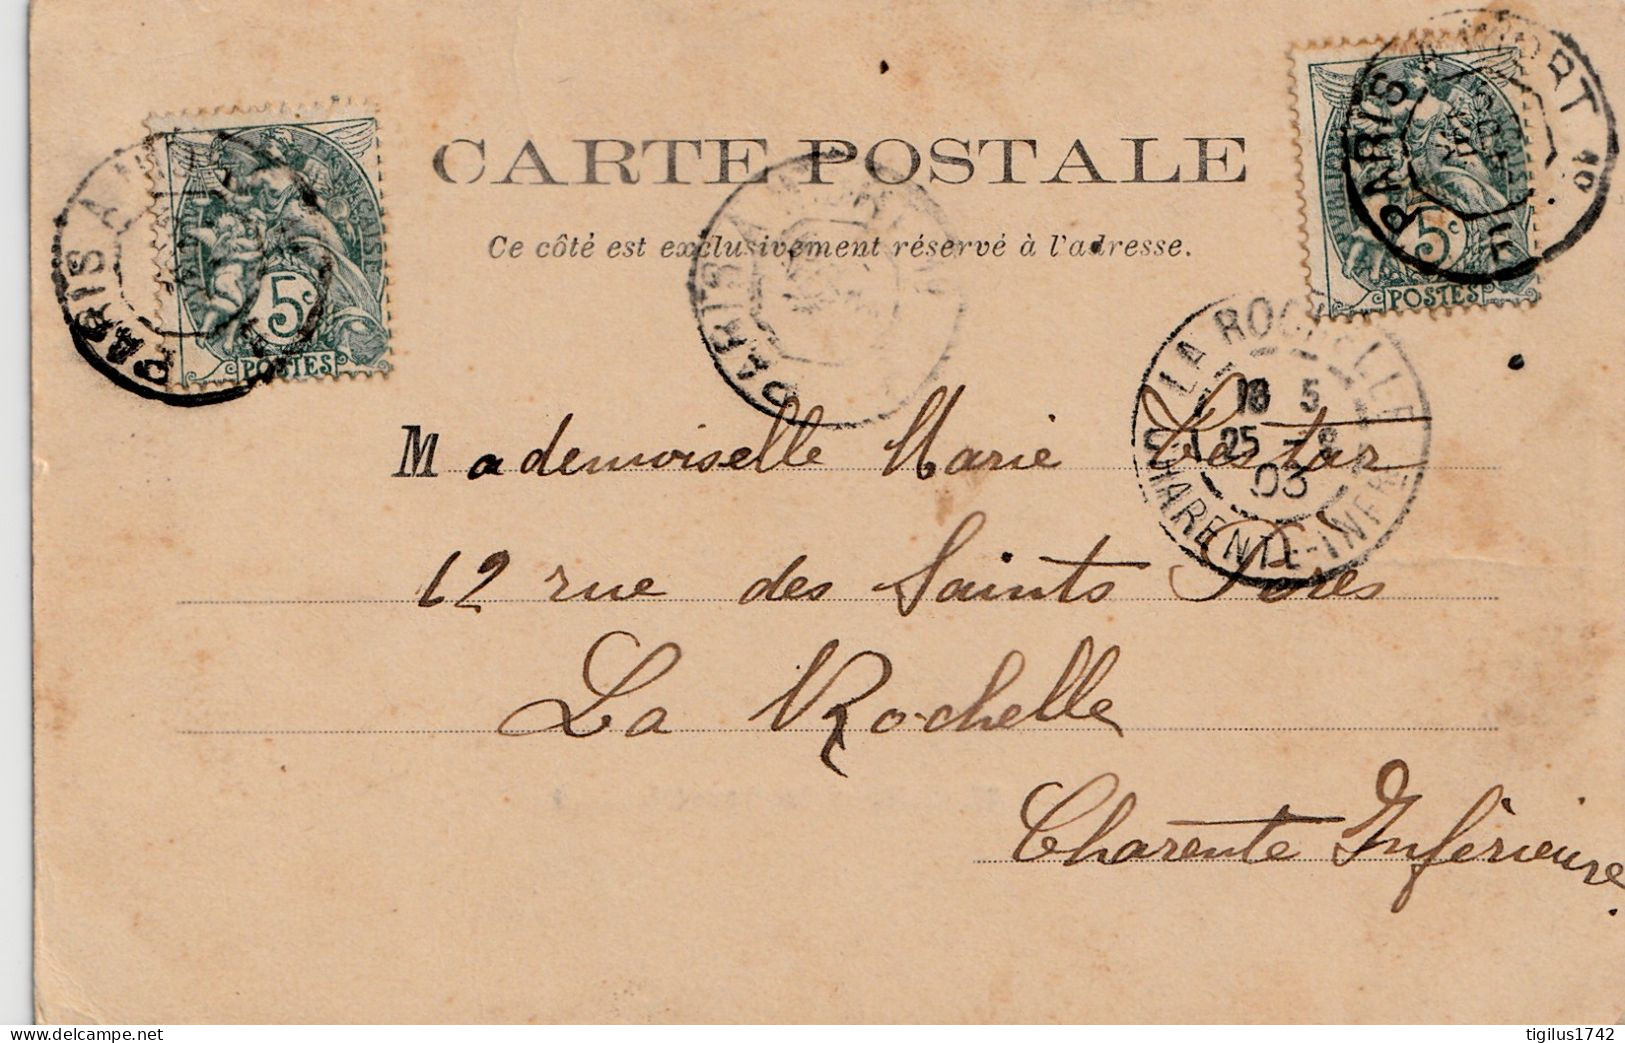 CARTE POSTALE
Ce côté est exclusivement réservé à l'adresse.
PARIS A
5c
POSTES
PARIS A NIORT 1o
5c
POSTES
PARIS A NIORT
LA ROCHELLE
25 -8
03
CHARENTE-INFRE
Mademoiselle Marie Testar
12 rue des Saints Pères
La Rochelle
Charente Inférieure
delcampe.net
tigilus1742